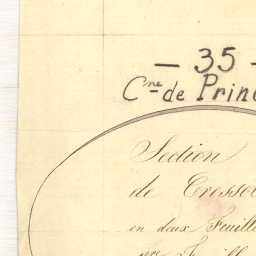 — 35 —
Cne de Prin
Section
de Crosso
en deux Feuill
1re Feuill